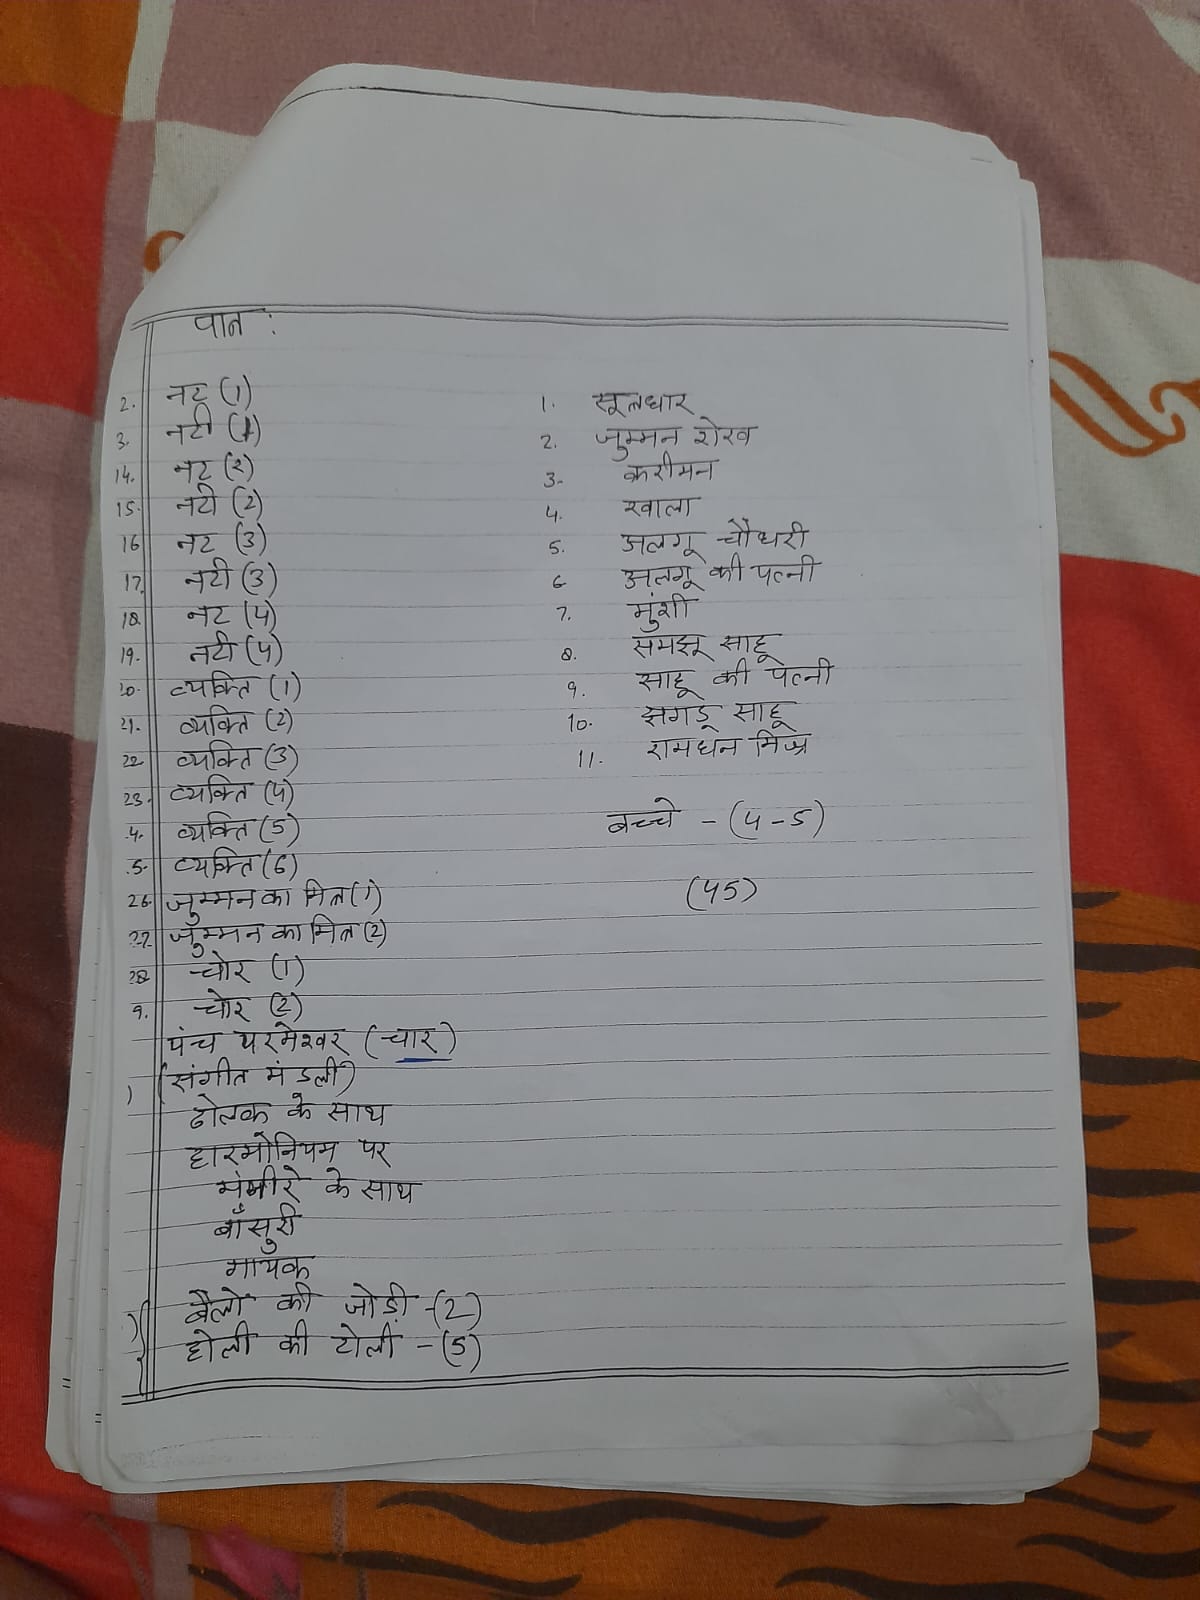 पात्र :
2. नट (1)
3. नटी (1)
14. नट (2)
15. नटी (2)
16 नट (3)
17. नटी (3)
18. नट (4)
19. नटी (4)
20. व्यक्ति (1)
21. व्यक्ति (2)
22 व्यक्ति (3)
23. व्यक्ति (4)
4. व्यक्ति (5)
5. व्यक्ति (6)
26. जुम्मन का मित्र (1)
27. जुम्मन का मित्र (2)
28 चोर (1)
9. चोर (2)
पंच परमेश्वर (चार)
(संगीत मंडली)
ढोलक के साथ
हारमोनियम पर
मंजीरे के साथ
बाँसुरी
गायक
बैलों की जोड़ी -(2)
होली की टोली -(5)
1. सूत्रधार
2. जुम्मन शेख
3. करीमन
4. खाला
5. अलगू चौधरी
6 अलगू की पत्नी
7. मुंशी
8. समझू साहू
9. साहू की पत्नी
10. झगडू साहू
11. रामधन मिश्र
बच्चे - (4-5)
(45)